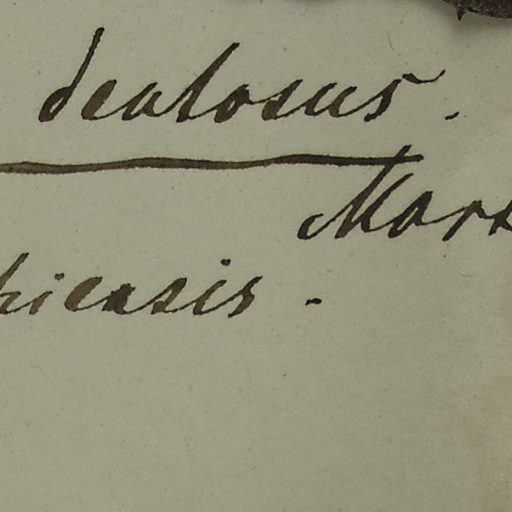 dealosus.
Mart
hiensis.